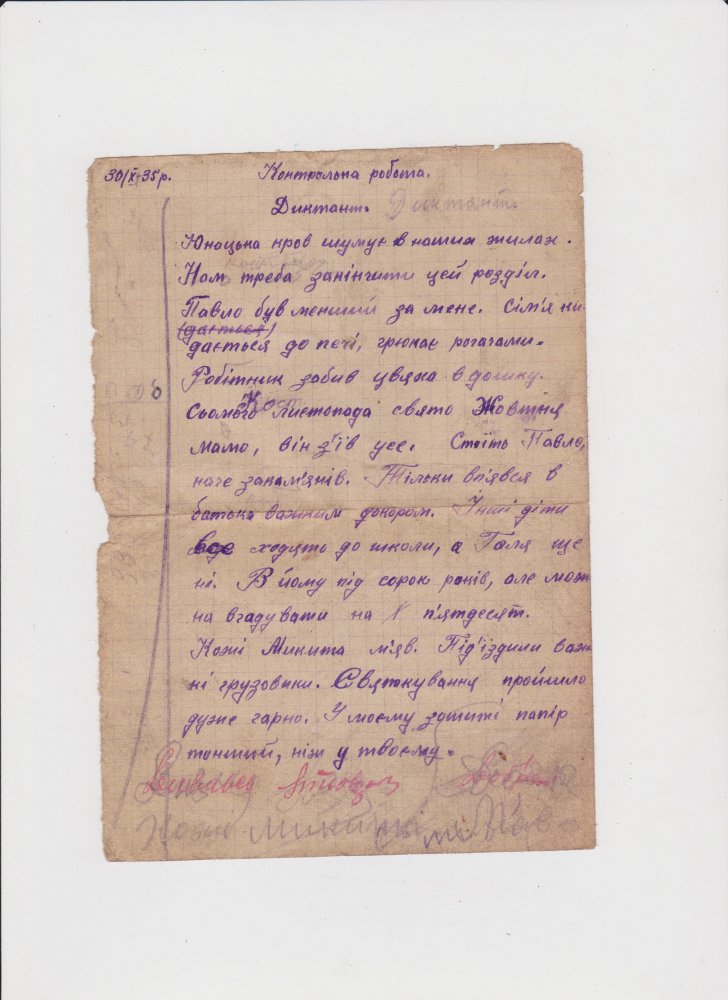 30/X-35р.
Контрольна робота.
Диктант. Диктант.
Юнацька кров шумує в наших жилах.
Нам треба закінчити цей розділ.
Павло був менший за мене. Сім'я ки-
(дається)
дається до печі, грюкає рогачами.
Робітник забив цвяха в дошку.
Сьомого листопада свято Жовтня
Мамо, він з'їв усе. Стоїть Павло,
наче закам'янів. Тільки вп'явся в
батька важким докором. Інші діти
все ходять до школи, а Галя ще
ні. В йому під сорок років, але мож
на вгадувати на п'ятдесят.
Кожі Микита м'яв. Під'їздили важ
ні грузовики. Святкування пройшло
дуже гарно. У моєму зошиті папір
тонший, ніж у твоєму.
Кожі Микита